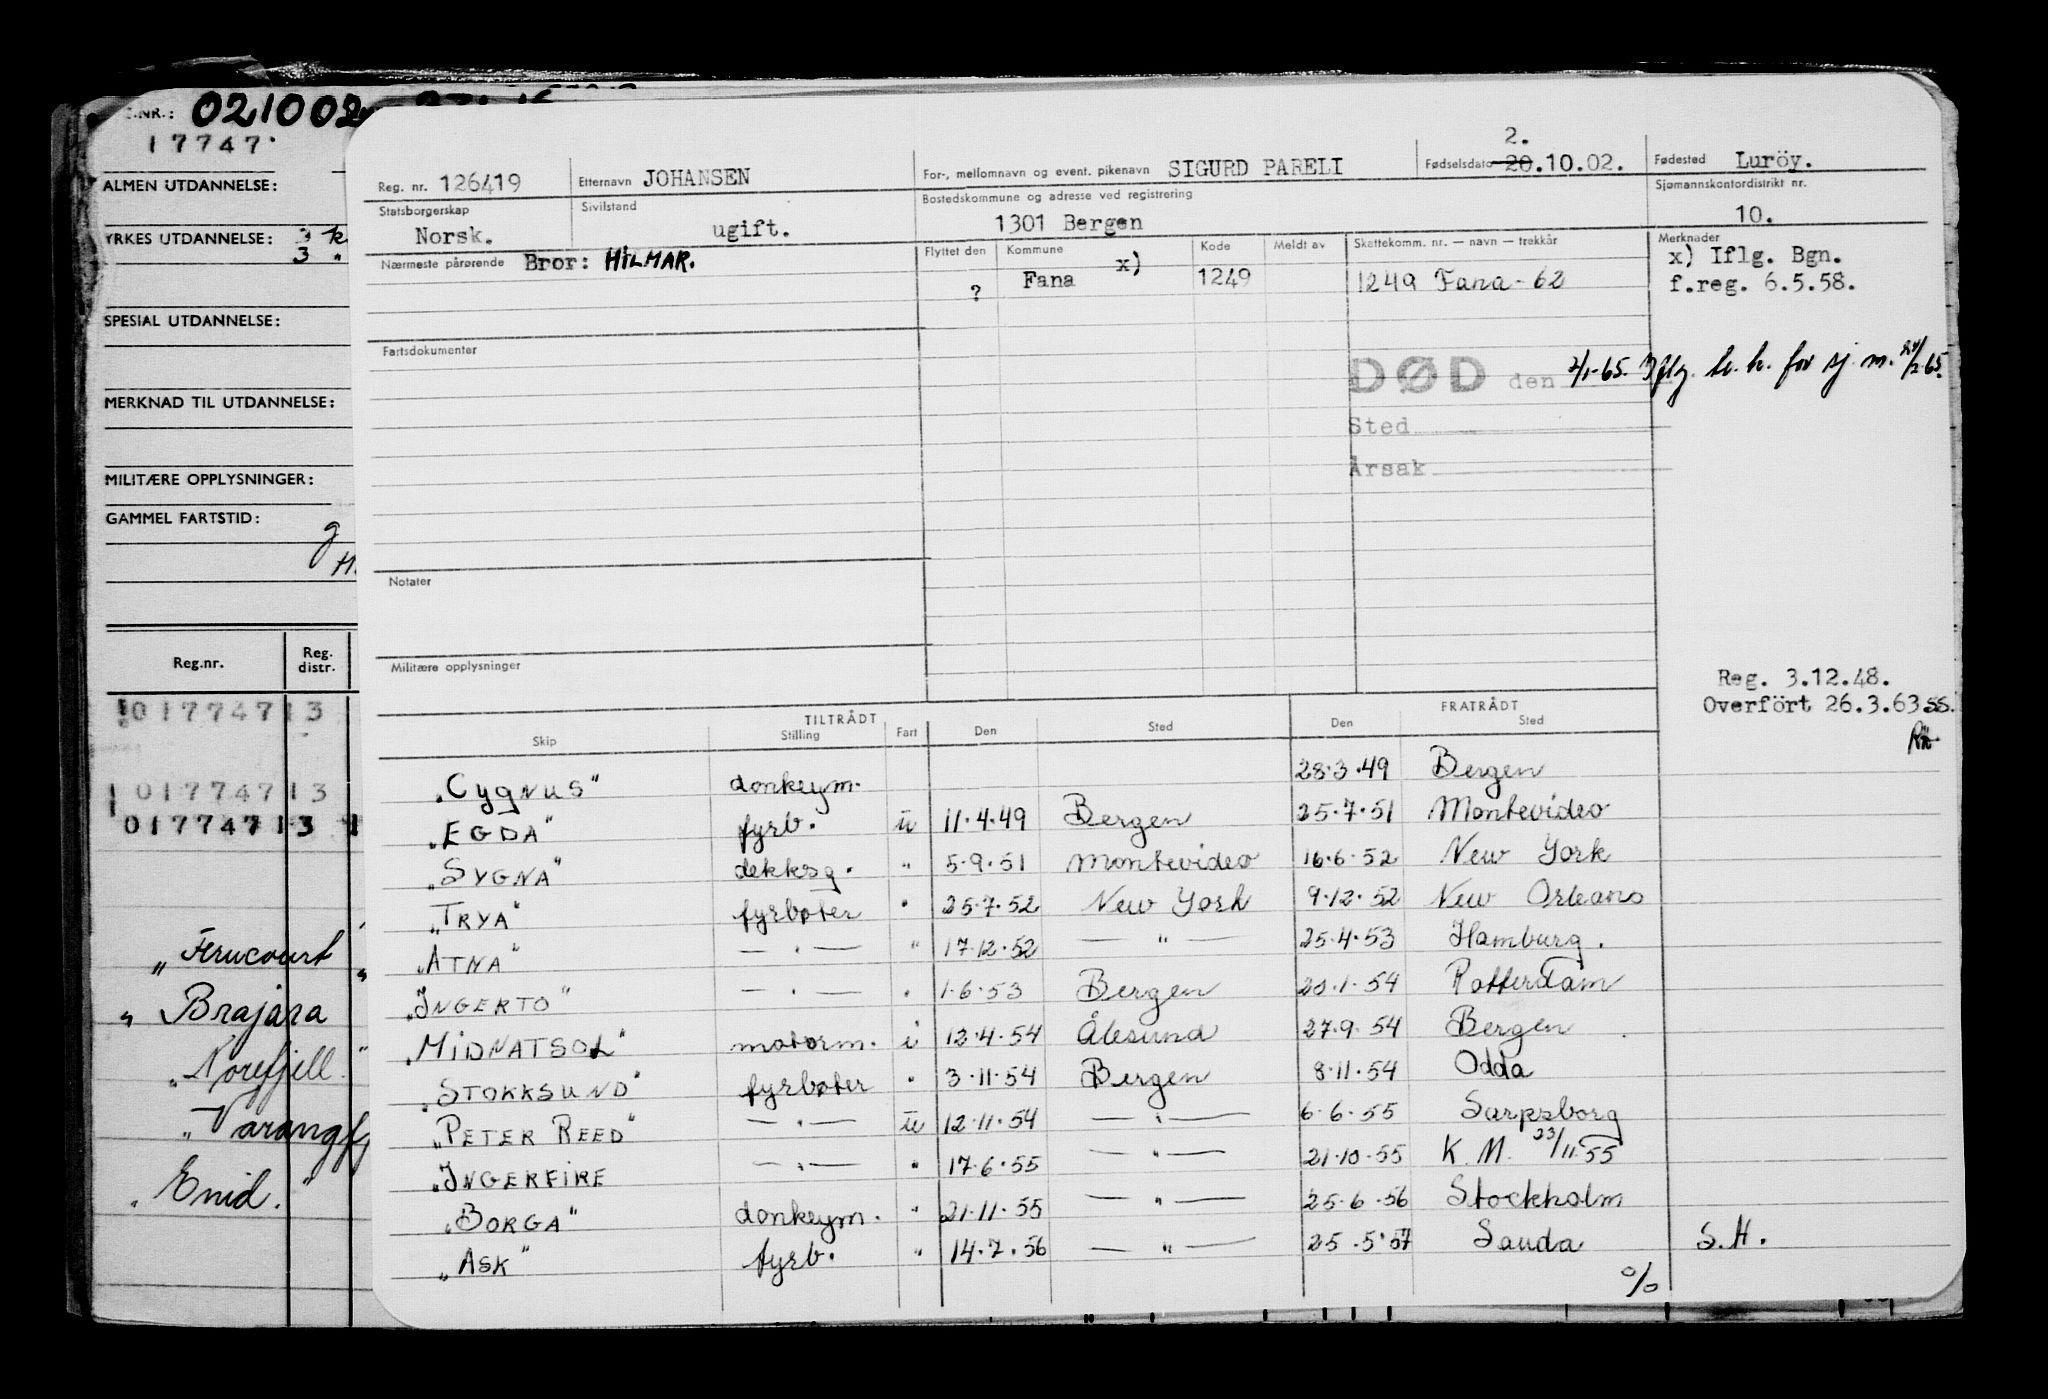 .NR.: 021002
17747
ALMEN UTDANNELSE:
YRKES UTDANNELSE: 3
3 "
SPESIAL UTDANNELSE:
MERKNAD TIL UTDANNELSE:
MILITÆRE OPPLYSNINGER:
GAMMEL FARTSTID:
Reg.nr. Reg. distr.
01774713
01774713
01774713
"Brajara
"Norefjell"
"Varangfj
"Enid."
Reg. nr. 126419 Etternavn JOHANSEN For-, mellomnavn og event. pikenavn SIGURD PARELI Fødselsdato 20.10.02. 2. Fødested Luröy.
Statsborgerskap Norsk. Sivilstand ugift. Bostedskommune og adresse ved registrering 1301 Bergen Sjømannskontordistrikt nr. 10.
Nærmeste pårørende Bror: HILMAR. Flyttet den Kommune Kode Meldt av Skattekomm. nr. — navn — trekkår Merknader
? Fana x) 1249 1249 Fana - 62 x) Iflg. Bgn.
f.reg. 6.5.58.
Fartsdokumenter
DØD den 2/1-65. Iflg. h. h. for sj. m. 24/2-65.
Sted
Årsak
Notater
Militære opplysninger
Reg. 3.12.48.
Overfört 26.3.63 ss.
TILTRÅDT FRATRÅDT
Skip Stilling Fart Den Sted Den Sted
"CYGNUS" donkeym. 28.3.49 Bergen
"EGDA" fyrb. u 11.4.49 Bergen 25.7.51 Montevideo
"SYGNA" dekksg. " 5.9.51 Montevideo 16.6.52 New York
"TRYA" fyrbøter " 25.7.52 New York 9.12.52 New Orleans
"ATNA" — " — " 17.12.52 — " — 25.4.53 Hamburg.
"INGERTO" — " — " 1.6.53 Bergen 20.1.54 Rotterdam
"MIDNATSOL" motorm. i 12.4.54 Ålesund 27.9.54 Bergen
"STOKKSUND" fyrbøter " 3.11.54 Bergen 8.11.54 Odda
"PETER REED" — " — u 12.11.54 — " — 6.6.55 Sarpsborg
"INGERFIRE — " — " 17.6.55 — " — 21.10.55 K.M. 23/11-55
"BORGA" donkeym. " 21.11.55 — " — 25.6.56 Stockholm
"ASK" fyrb. " 14.7.56 — " — 25.5.57 Sauda S.H.
%